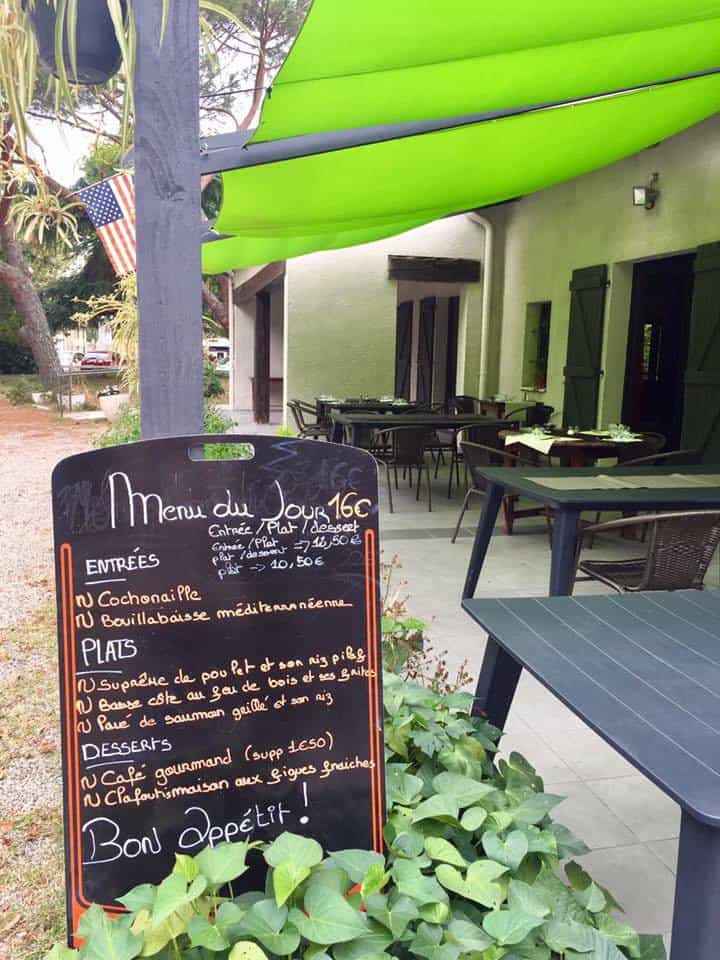 Menu du Jour 16€
Entrée/Plat/dessert
Entrée/Plat
plat/dessert
plat -> 10,50€
ENTRÉES
Cochonaille
Bouillabaisse méditerranéenne
PLATS
Suprême de poulet et son riz pilaf
Basse côte au feu de bois et ses frites
Pavé de saumon grillé et son riz
DESSERTS
Café gourmand (supp 1€50)
Clafoutis maison aux figues fraiches
Bon Appétit !